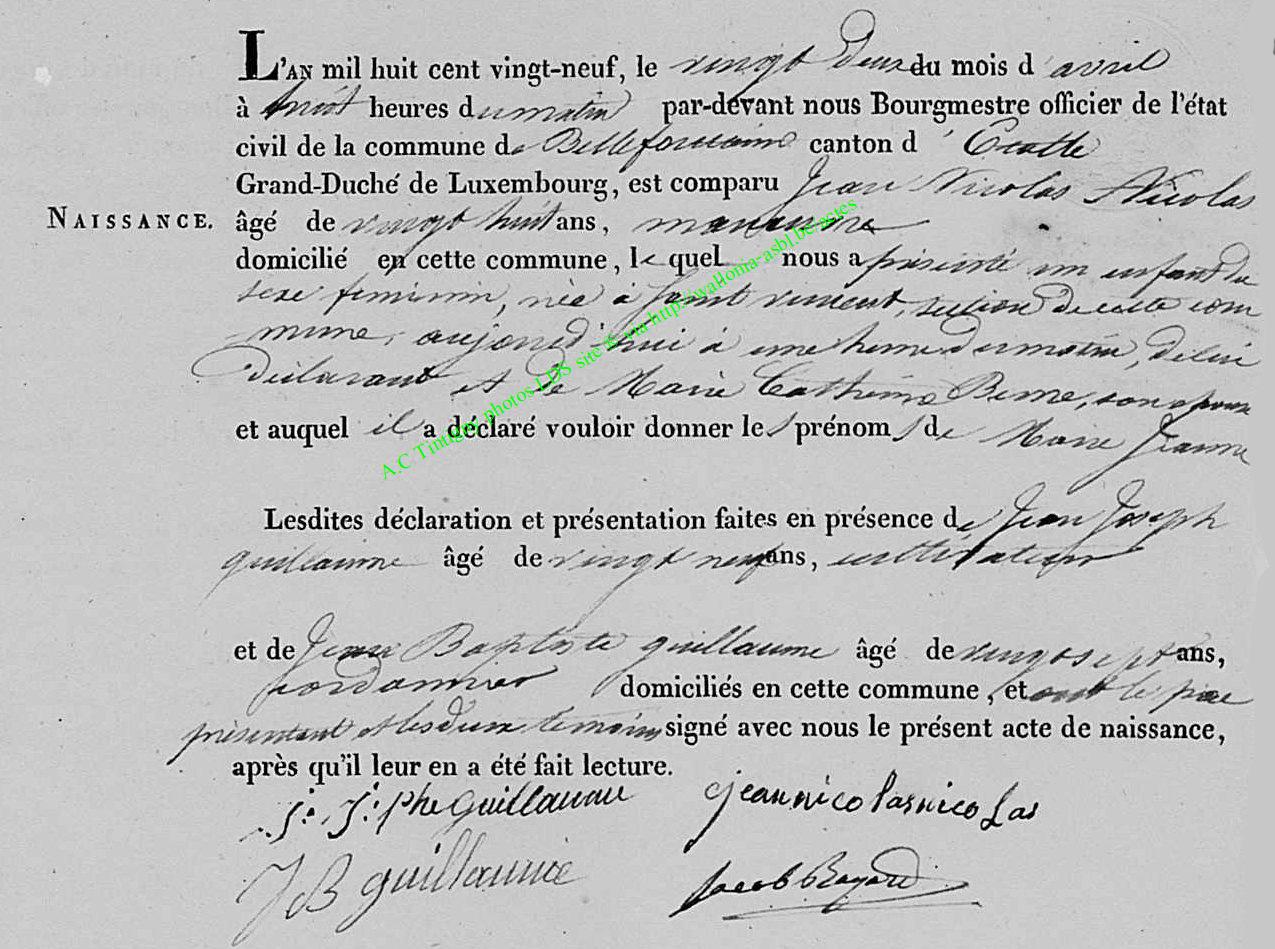 L'AN mil huit cent vingt-neuf, le vingt deux du mois d'avril
à huit heures du matin par-devant nous Bourgmestre officier de l'état
civil de la commune de Bellefontaine canton d'Etalle
Grand-Duché de Luxembourg, est comparu Jean Nicolas Nicolas
NAISSANCE. âgé de vingt huit ans, manœuvre
domicilié en cette commune, le quel nous a présenté un enfant du
sexe feminin, née à Saint vincent, section de cette com
mune, aujourd'hui à une heure du matin, de lui
déclarant et de Marie Catherine, son epouse
et auquel il a déclaré vouloir donner les prénoms de Marie Jeanne
Lesdites déclaration et présentation faites en présence de Jean Joseph
guillaume âgé de vingt neuf ans, cultivateur
et de Jean Baptiste guillaume âgé de vingt sept ans,
cordonnier domiciliés en cette commune, et ont le père
présentant et les deux temoins signé avec nous le présent acte de naissance,
après qu'il leur en a été fait lecture.
J: J:phe Guillaume jean nicolas nicolas
JB guillaume Jacob
A.C Tintigny photos LDS site & via http://wallonia-asbl.be/actes